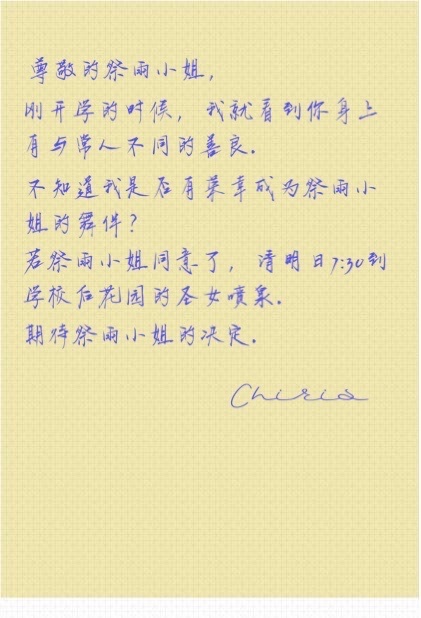 尊敬的祭雨小姐，
刚开学的时候，我就看到你身上
有与常人不同的善良．
不知道我是否有荣幸成为祭雨小
姐的舞伴？
若祭雨小姐同意了，请明日7:30到
学校后花园的圣女喷泉．
期待祭雨小姐的决定．
Chiria